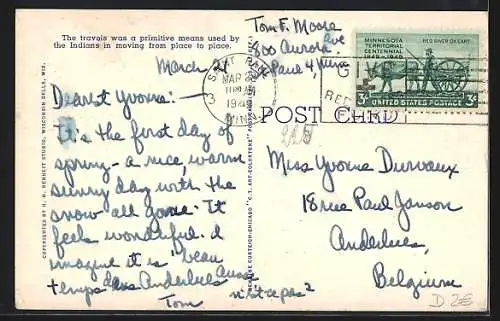 The travois was a primitive means used by
the Indians in moving from place to place.
Tom F. Moore
800 Aurora Ave
St Paul 4, Minn
March 21
Dearest Yvonne:-
It's the first day of
spring - a nice, warm
sunny day with the
snow all gone. It
feels wonderful. I
imagine it is "beau
temps dans Anderlues aussi
n'est ce pas?
Tom
COPYRIGHTED BY H. H. BENNETT STUDIO, WISCONSIN DELLS, WIS.
CURTEICH-CHICAGO "C.T. ART-COLORTONE" POST
SAINT PAUL
MAR 2
194
MINN.
3
GI
RED
MINNESOTA
TERRITORIAL
CENTENNIAL
1849-1949
RED RIVER OX CART
3¢ UNITED STATES POSTAGE 3¢
POST CARD
Miss Yvonne Durvaux
18 rue Paul Janson
Anderlues
Belgium
D. 2€